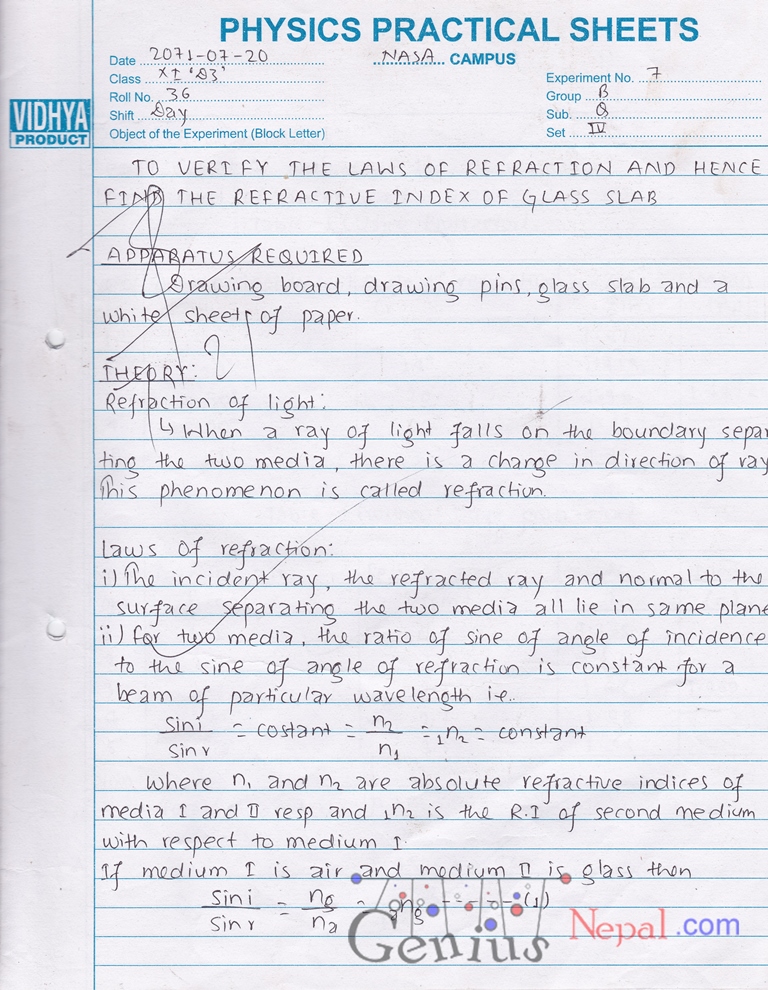 PHYSICS PRACTICAL SHEETS
Date 2071-07-20 NASA CAMPUS
Class XI 'D3' Experiment No. 7
Roll No. 36 Group B
Shift Day Sub. Q
VIDHYA PRODUCT Object of the Experiment (Block Letter) Set IV
TO VERIFY THE LAWS OF REFRACTION AND HENCE
FIND THE REFRACTIVE INDEX OF GLASS SLAB
APPARATUS REQUIRED
Drawing board, drawing pins, glass slab and a
white sheet of paper.
THEORY:
Refraction of light:
↳ When a ray of light falls on the boundary separa
ting the two media, there is a change in direction of ray
This phenomenon is called refraction.
Laws of refraction:
i) The incident ray, the refracted ray and normal to the
surface separating the two media all lie in same plane
ii) for two media, the ratio of sine of angle of incidence
to the sine of angle of refraction is constant for a
beam of particular wavelength i.e.
sin i / sin r = costant = n₂ / n₁ = ₁n₂ = constant
where n₁ and n₂ are absolute refractive indices of
media I and II resp and ₁n₂ is the R.I of second medium
with respect to medium I.
If medium I is air and medium II is glass then
sin i / sin r = ng / na = ang ----- (1)
Genius Nepal.com